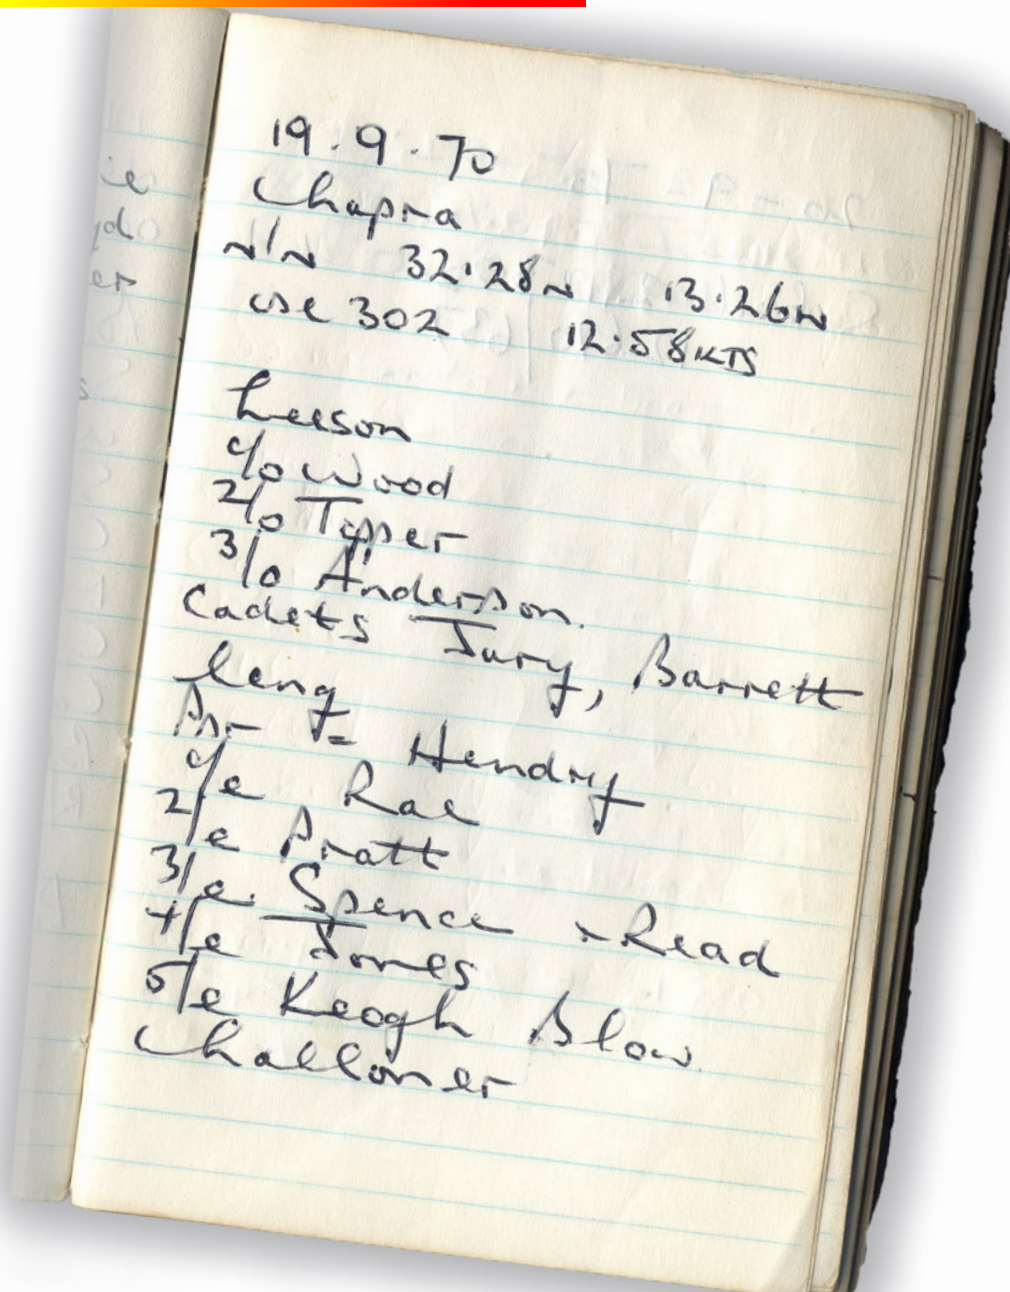 19.9.70
Chapra
N/N 32.28N 13.26W
cse 302 12.58KTS
Leeson
c/o Wood
2/o Tipper
3/o Anderson.
Cadets Jury, Barrett
Leng
Hendry
c/e Rae
2/e Pratt
3/e. Spence + Read
4/e Jones
5/e Keogh Blow
Challoner
ie
er